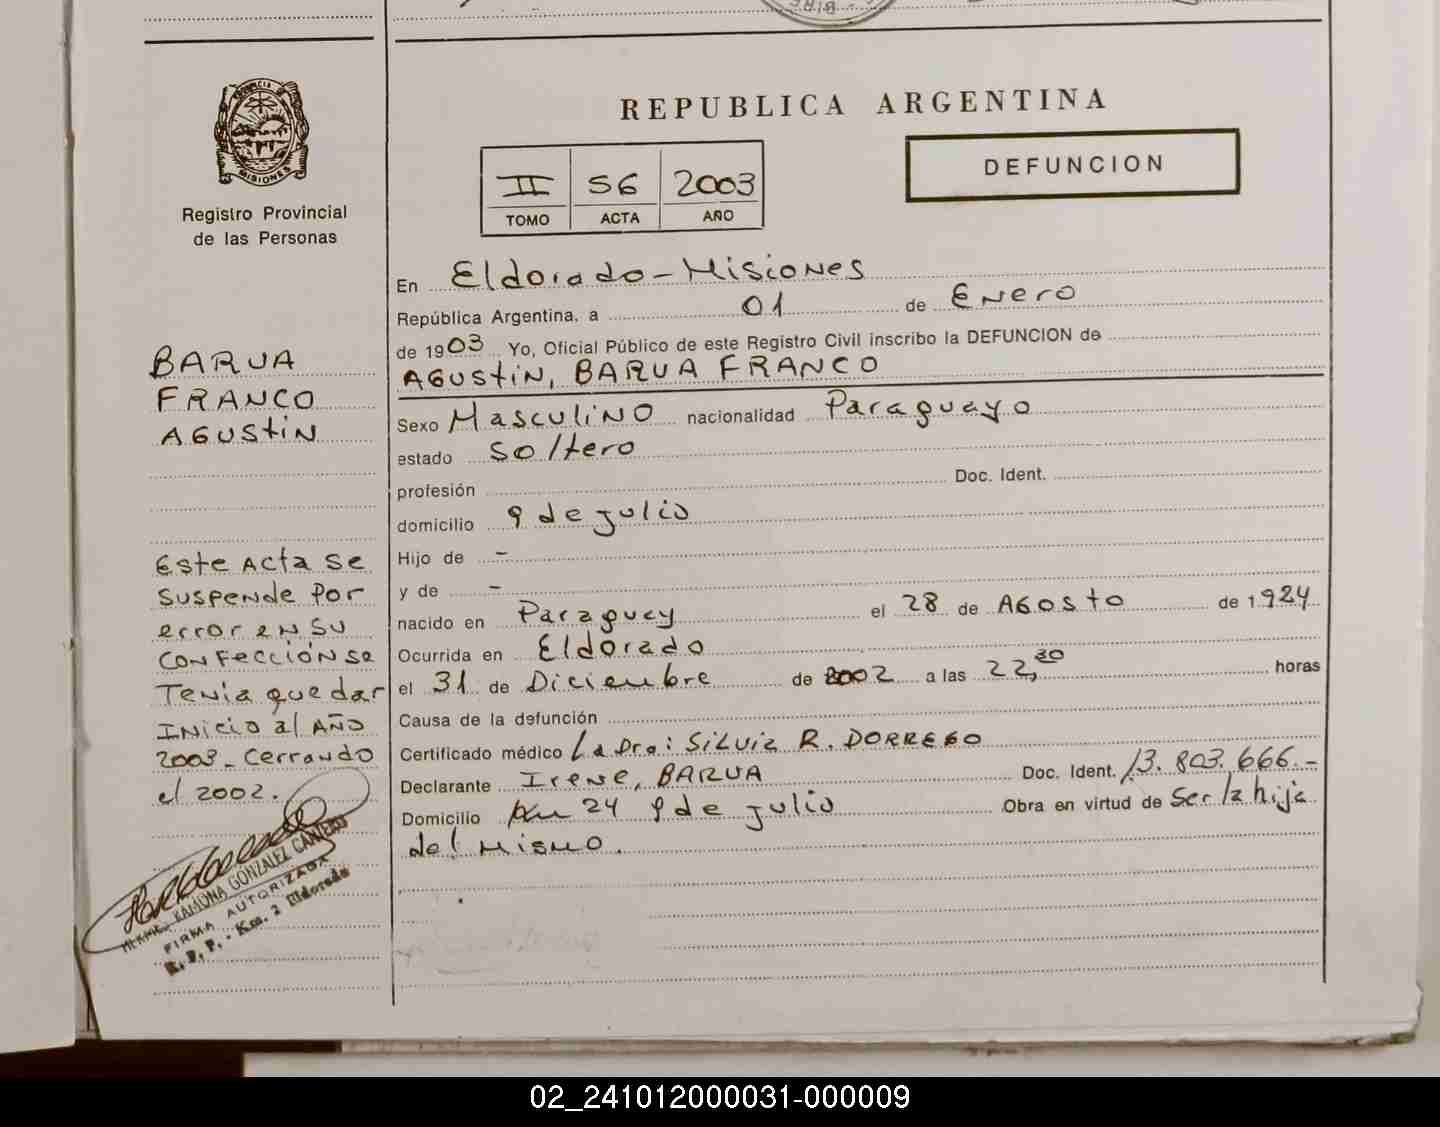 PROVINCIA DE
MISIONES
Registro Provincial
de las Personas
BARUA
FRANCO
AGUStiN
Este Acta se
suspende por
error en su
confección se
Tenia que dar
INicio al AÑO
2003 - Cerrando
el 2002.
RAMONA GONZALEZ
FIRMA AUTORIZADA
R. P. P. - Km. 2 Eldorado
REPUBLICA ARGENTINA
II 56 2003
TOMO ACTA AÑO
DEFUNCION
En Eldorado - Misiones
República Argentina, a 01 de Enero
de 1903 Yo, Oficial Público de este Registro Civil inscribo la DEFUNCION de
AGUStiN, BARUA FRANCO
Sexo Masculino nacionalidad Paraguayo
estado Soltero
profesión Doc. Ident.
domicilio 9 de julio
Hijo de -
y de -
nacido en Paraguay el 28 de AGosto de 1924
Ocurrida en Eldorado
el 31 de Diciembre de 2002 a las 22,30 horas
Causa de la defunción
Certificado médico La Dra: SiLvia R. DORREGO
Declarante Irene, BARUA Doc. Ident. 13.803.666.-
Domicilio Km 24 9 de julio Obra en virtud de Ser la hija
del Mismo.
02_241012000031-000009